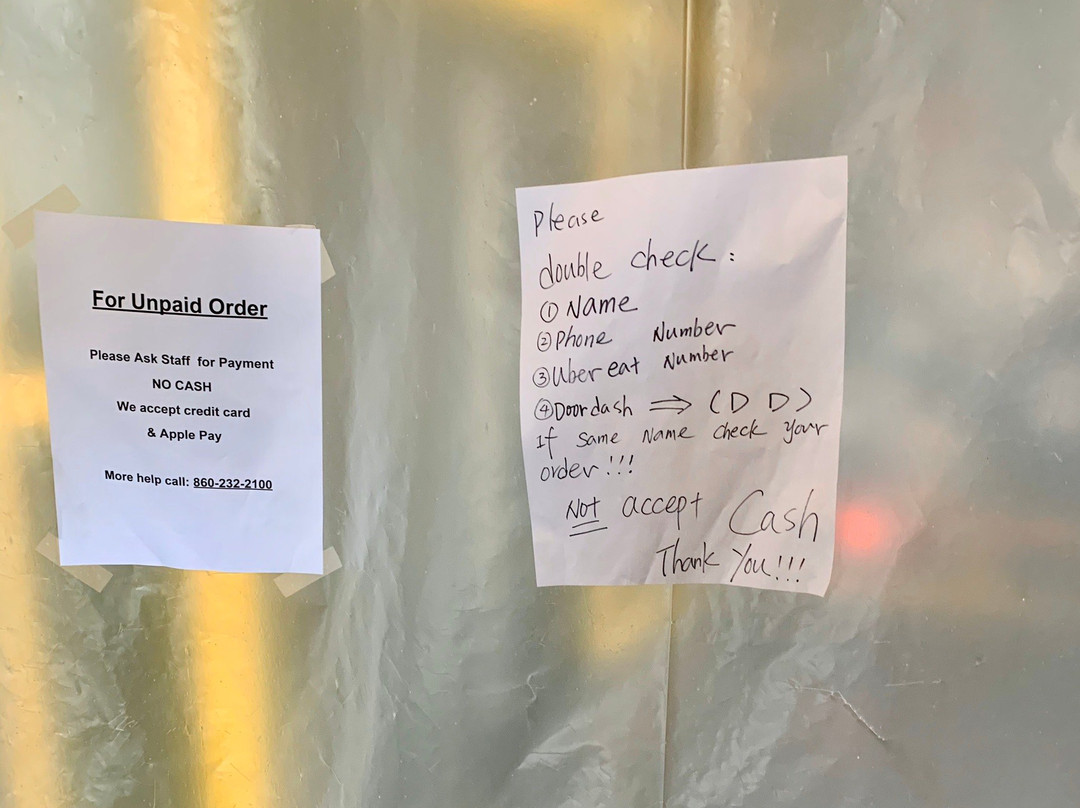 For Unpaid Order
Please Ask Staff for Payment
NO CASH
We accept credit card
& Apple Pay
More help call: 860-232-2100
Please
double check:
① Name
② Phone Number
③ Uber eat Number
④ Doordash ⇒ (D D)
If same Name check your
order!!!
Not accept Cash
Thank You!!!